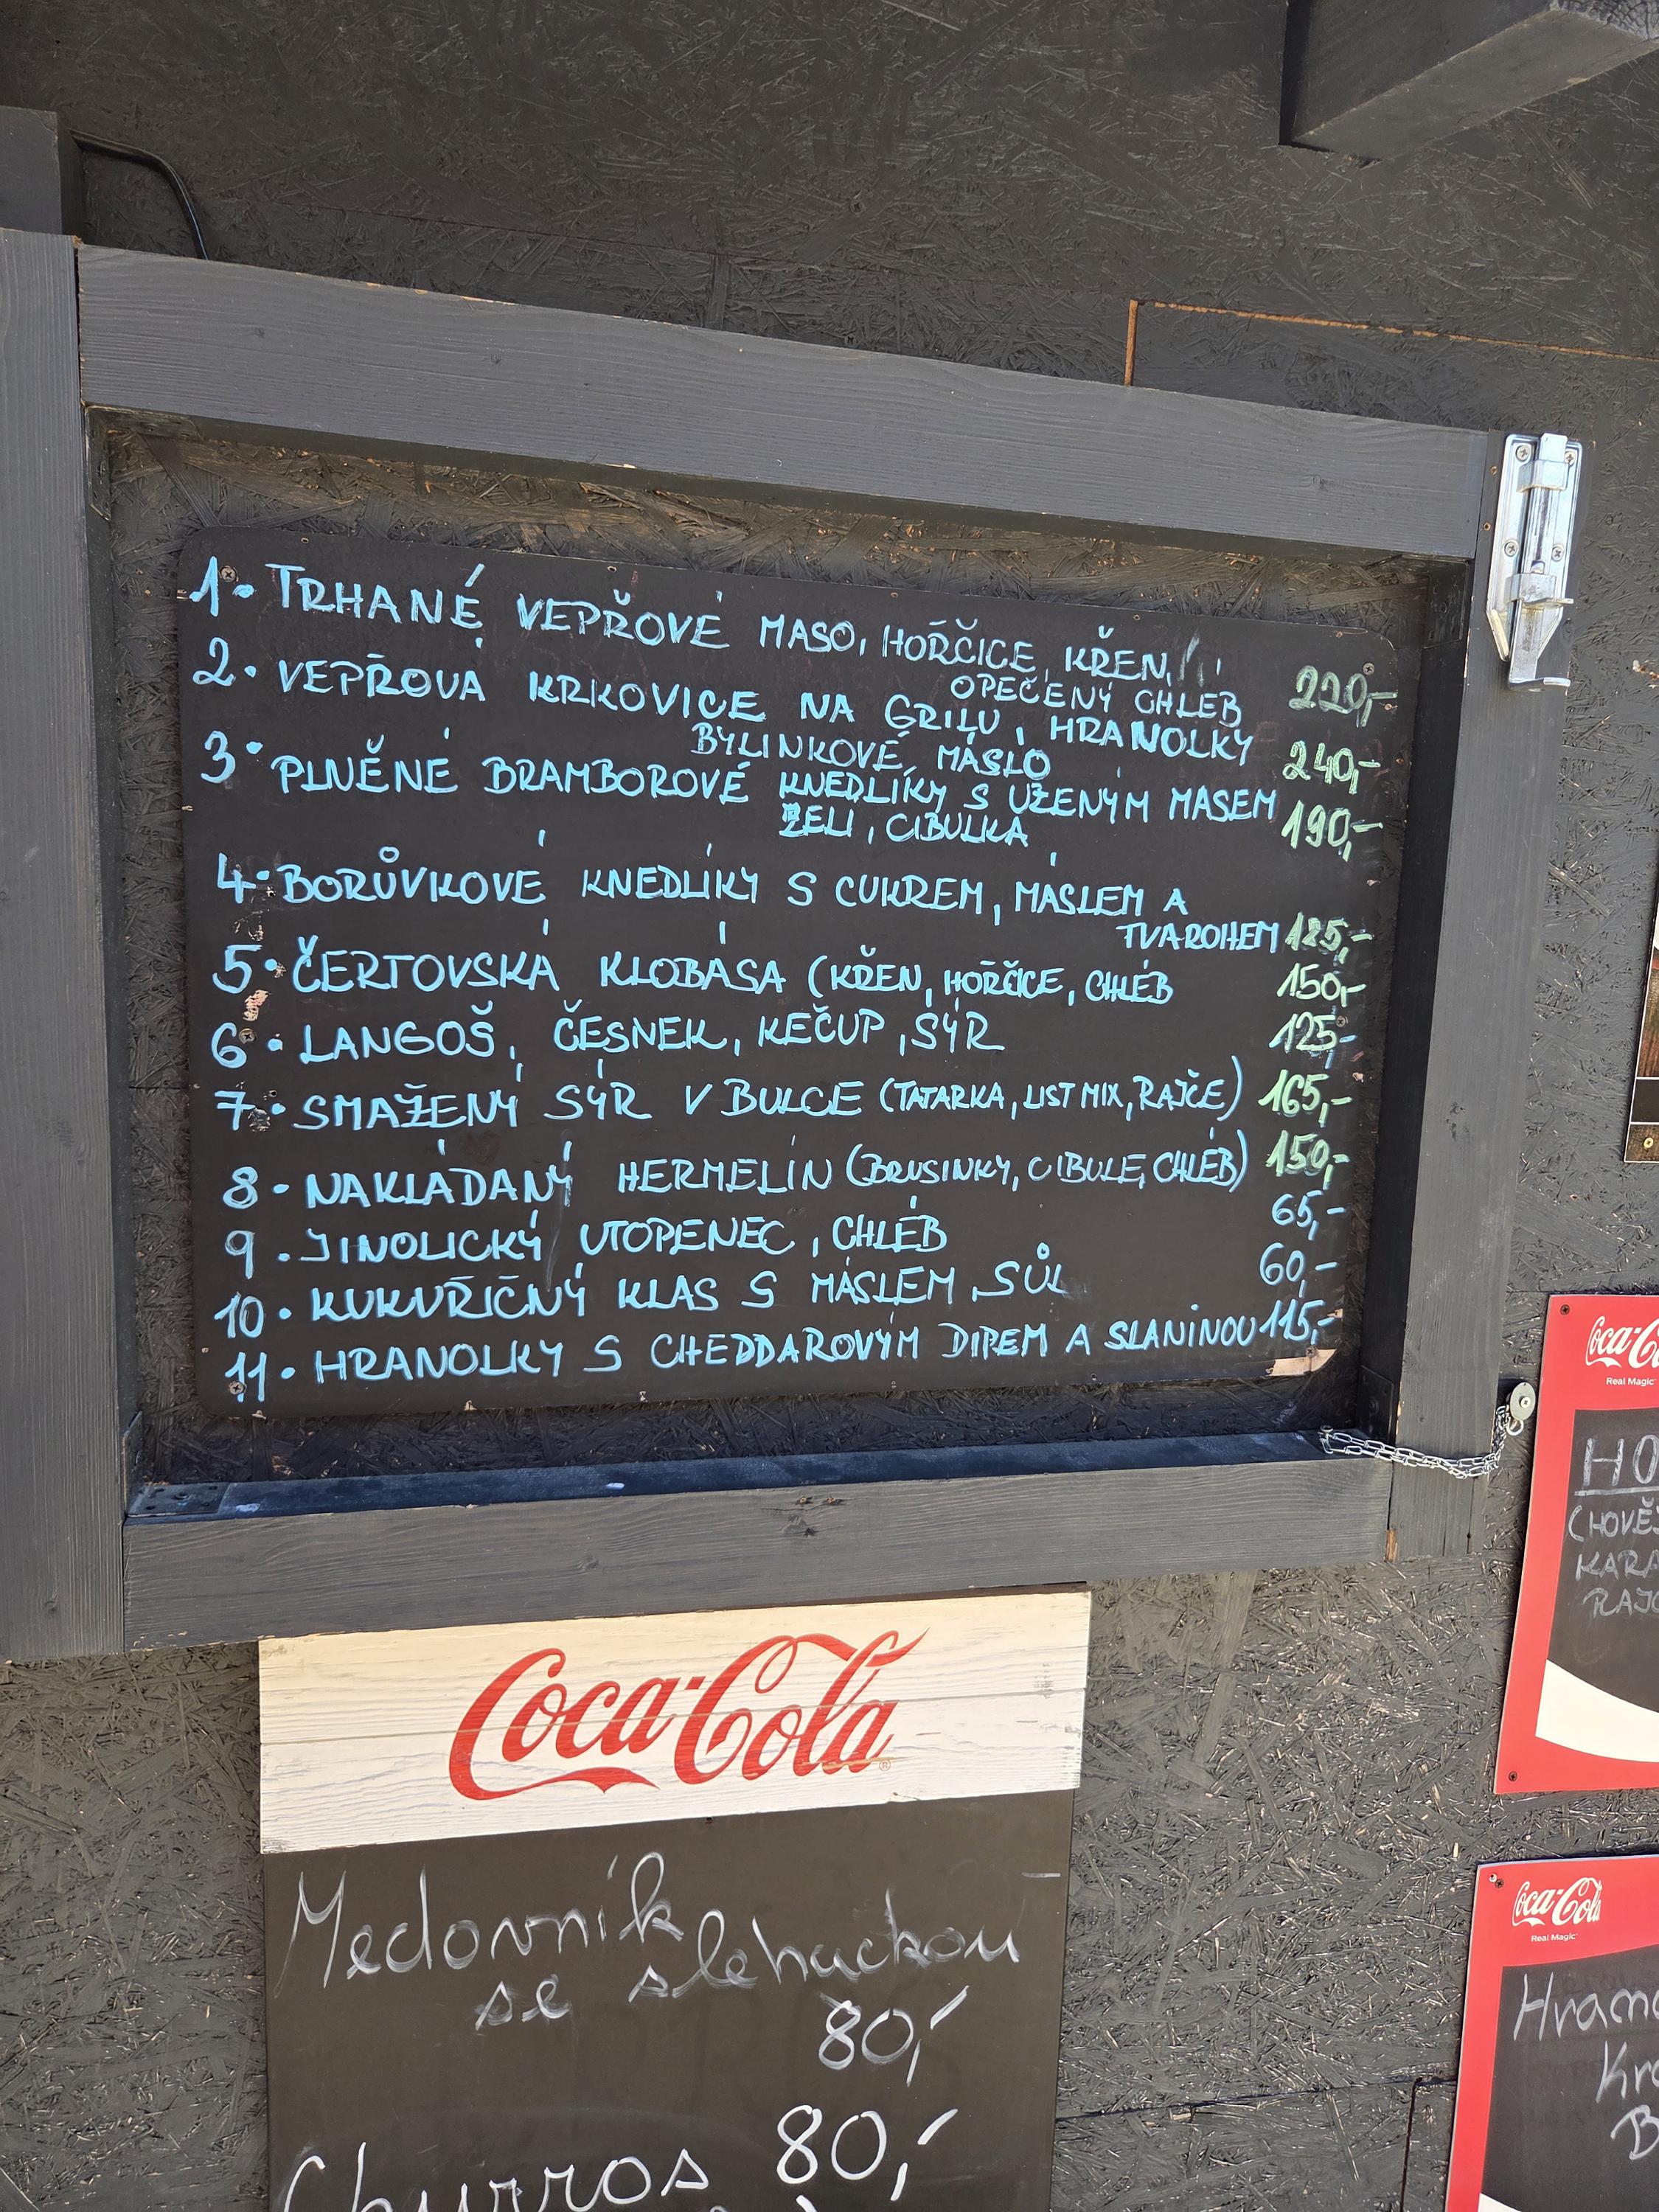 1. TRHANÉ VEPŘOVÉ MASO, HOŘČICE, KŘEN,
OPEČENÝ CHLÉB 220,-
2. VEPŘOVÁ KRKOVICE NA GRILU, HRANOLKY
BYLINKOVÉ MÁSLO 240,-
3. PLNĚNÉ BRAMBOROVÉ KNEDLÍKY S UZENÝM MASEM
ZELÍ, CIBULKA 190,-
4. BORŮVKOVÉ KNEDLÍKY S CUKREM, MÁSLEM A
TVAROHEM 185,-
5. ČERTOVSKÁ KLOBÁSA (KŘEN, HOŘČICE, CHLÉB 150,-
6. LANGOŠ, ČESNEK, KEČUP, SÝR 125,-
7. SMAŽENÝ SÝR V BULCE (TATARKA, LIST MIX, RAJČE) 165,-
8. NAKLÁDANÝ HERMELÍN (BRUSINKY, CIBULE, CHLÉB) 150,-
9. JINOLICKÝ UTOPENEC, CHLÉB 65,-
10. KUKUŘIČNÝ KLAS S MÁSLEM, SŮL 60,-
11. HRANOLKY S CHEDDAROVÝM DIPEM A SLANINOU 115,-
Coca-Cola
Medovník
se šlehačkou
80,-
Churros 80,-
Coca-Cola
Real Magic
HO
CHOVĚ
KARA
RAJČ
Coca-Cola
Real Magic
Hrano
Kro
B